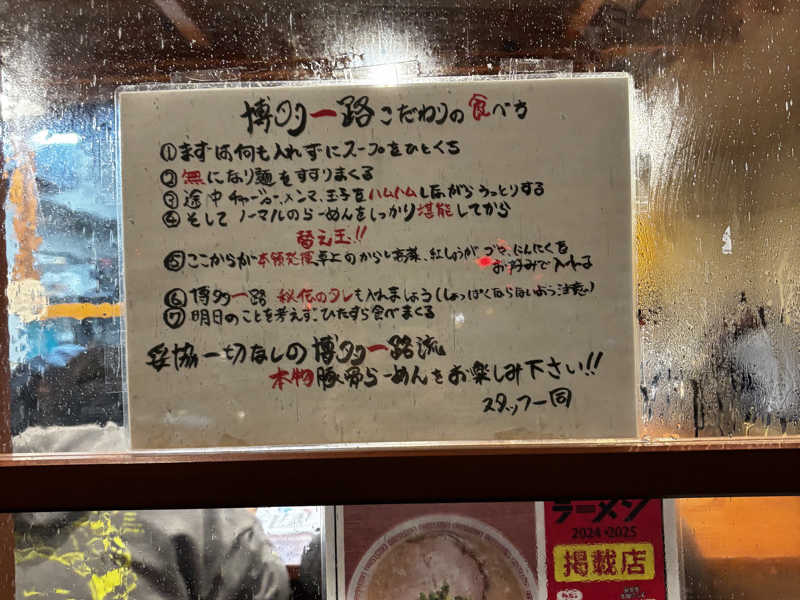 博多一路こだわりの食べ方
①まずは何も入れずにスープをひとくち
②無になり麺をすすりまくる
③途中チャーシュー、メンマ、玉子をハムハムしながらうっとりする
④そしてノーマルのらーめんをしっかり堪能してから
替え玉!!
⑤ここからが本領発揮卓上のから高菜、紅しょうが、ゴマ、にんにくを
お好みで入れる
⑥博多一路 秘伝のタレも入れましょう(しょっぱくならないよう注意♪)
⑦明日のことを考えず、ひたすら食べまくる
妥協一切なしの博多一路流
本物豚骨らーめんをお楽しみ下さい!!
スタッフ一同
ラーメン
2024-2025
掲載店